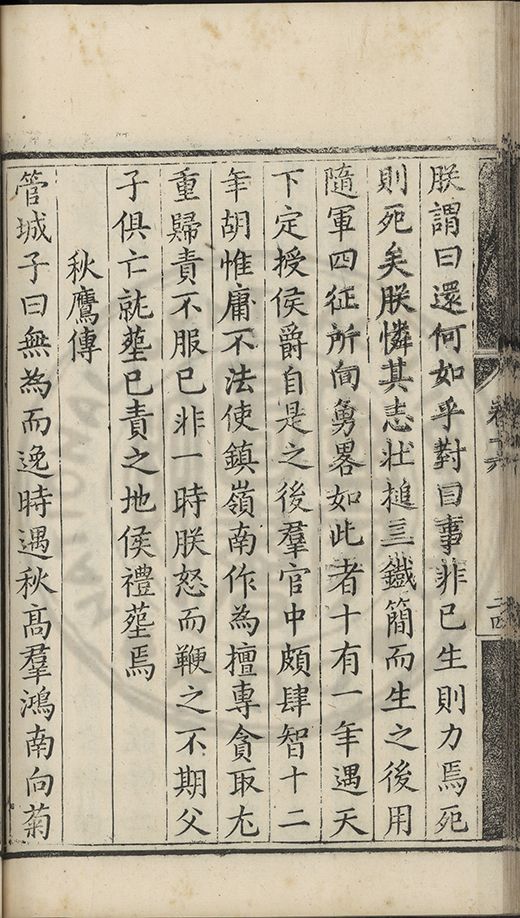 朕謂曰還何如乎對曰事非已生則力焉死
則死矣朕憐其志壯撾三鐵簡而生之後用
隨軍四征所向勇畧如此者十有一年遇天
下定授侯爵自是之後羣官中頗肆智十二
年胡惟庸不法使鎮嶺南作為擅專貪取尤
重歸責不服已非一時朕怒而鞭之不期父
子俱亡就塟已責之地侯禮塟焉
秋鷹傳
管城子曰無為而逸時遇秋高羣鴻南向菊
卷十六
二四